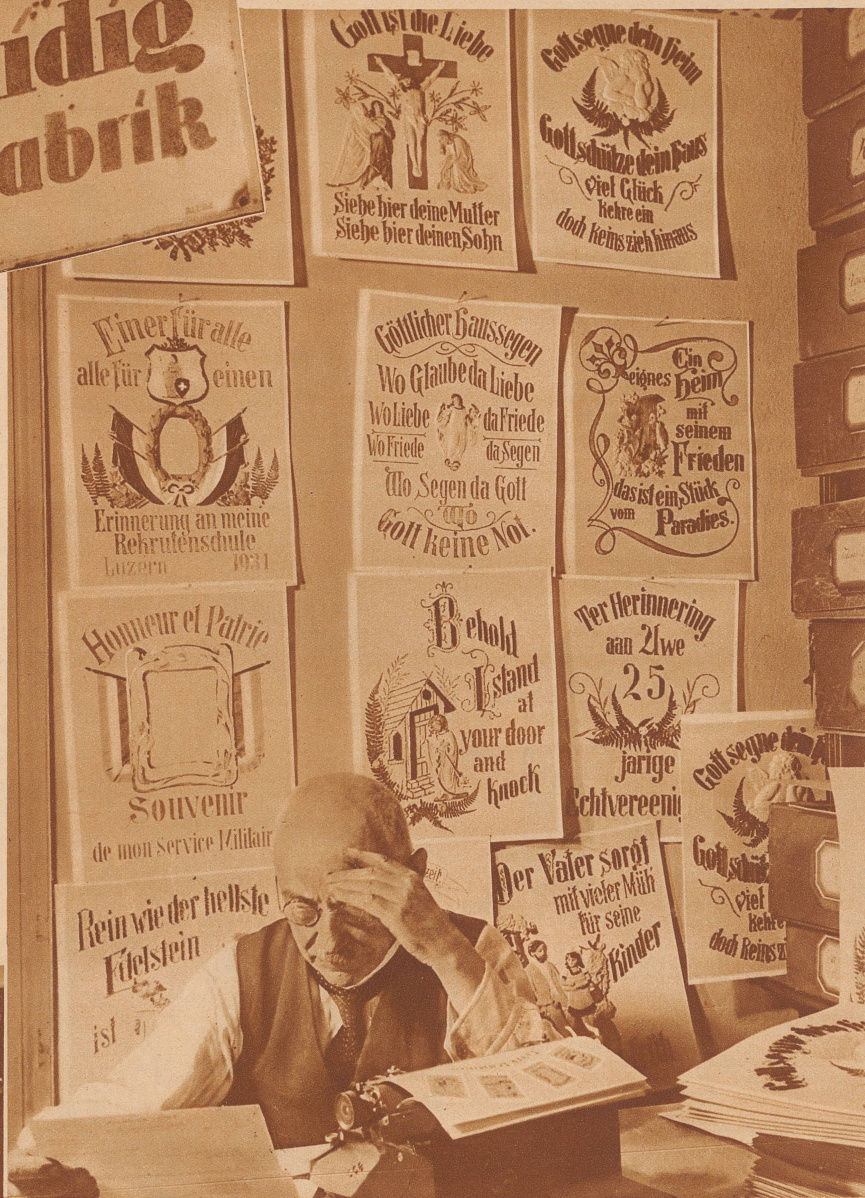 abrik
Gott ist die Liebe
Siehe hier deine Mutter
Siehe hier deinen Sohn
Gott segne dein Heim
Gott schütze dein Haus
Viel Glück
kehre ein
doch keins zieh hinaus
Einer für alle
alle für einen
Erinnerung an meine
Rekrutenschule
Luzern 1931
Göttlicher Haussegen
Wo Glaube da Liebe
Wo Liebe da Friede
Wo Friede da Segen
Wo Segen da Gott
Wo
Gott keine Not.
Ein
eignes Heim
mit
seinem
Frieden
das ist ein Stück
vom Paradies.
Honneur et Patrie
Souvenir
de mon service Militair
Behold
I stand
at
your door
and
knock
Ter Herinnering
aan Uwe
25
jarige
Echtvereenig
Gott segne dein
Gott schüt
Viel
kehre
doch keins zi
Rein wie der hellste
Edelstein
ist
Der Vater sorgt
mit vieler Müh
für seine
Kinder